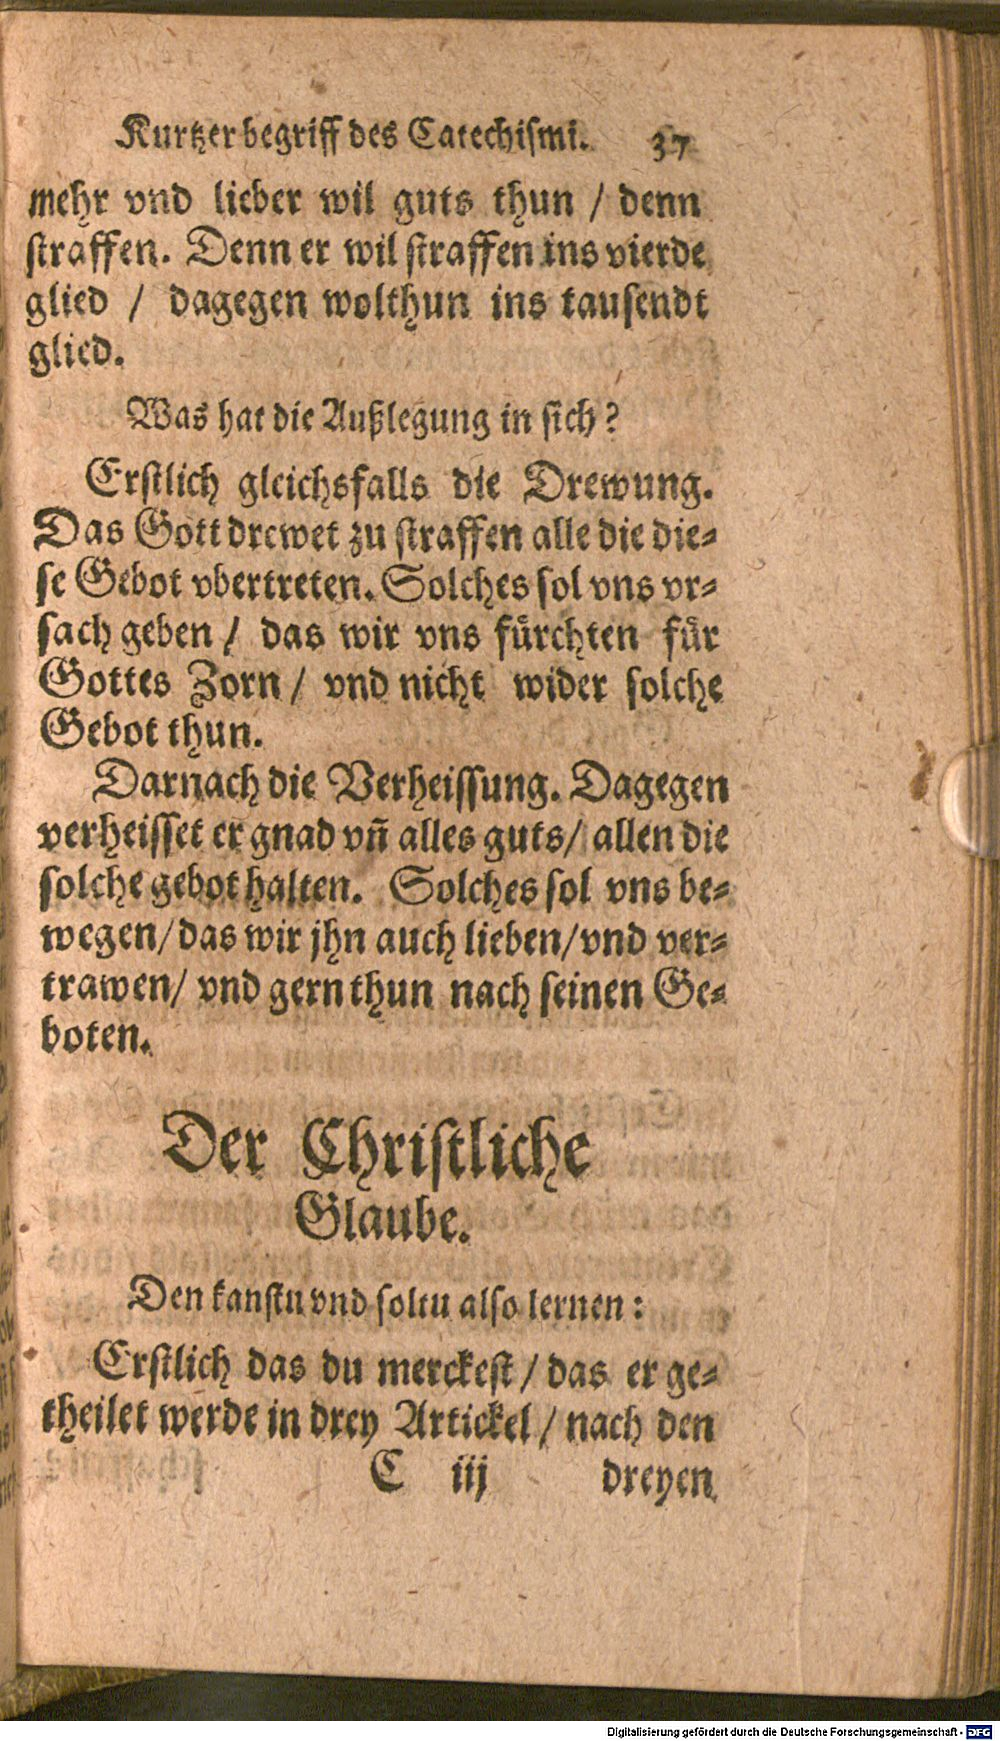 Kurtzer begriff des Catechismi. 37
mehr vnd lieber wil guts thun / denn
straffen. Denn er wil straffen ins vierde
glied / dagegen wolthun ins tausendt
glied.
Was hat die Außlegung in sich?
Erstlich gleichsfalls die Drewung.
Das Gott drewet zu straffen alle die die-
se Gebot vbertreten. Solches sol vns vr-
sach geben / das wir vns fürchten für
Gottes Zorn / vnd nicht wider solche
Gebot thun.
Darnach die Verheissung. Dagegen
verheisset er gnad vn̄ alles guts / allen die
solche gebot halten. Solches sol vns be-
wegen / das wir jhn auch lieben / vnd ver-
trawen / vnd gern thun nach seinen Ge-
boten.
Der Christliche
Glaube.
Den kanstu vnd soltu also lernen:
Erstlich das du merckest / das er ge-
theilet werde in drey Artickel / nach den
C iij dreyen
Digitalisierung gefördert durch die Deutsche Forschungsgemeinschaft - DFG